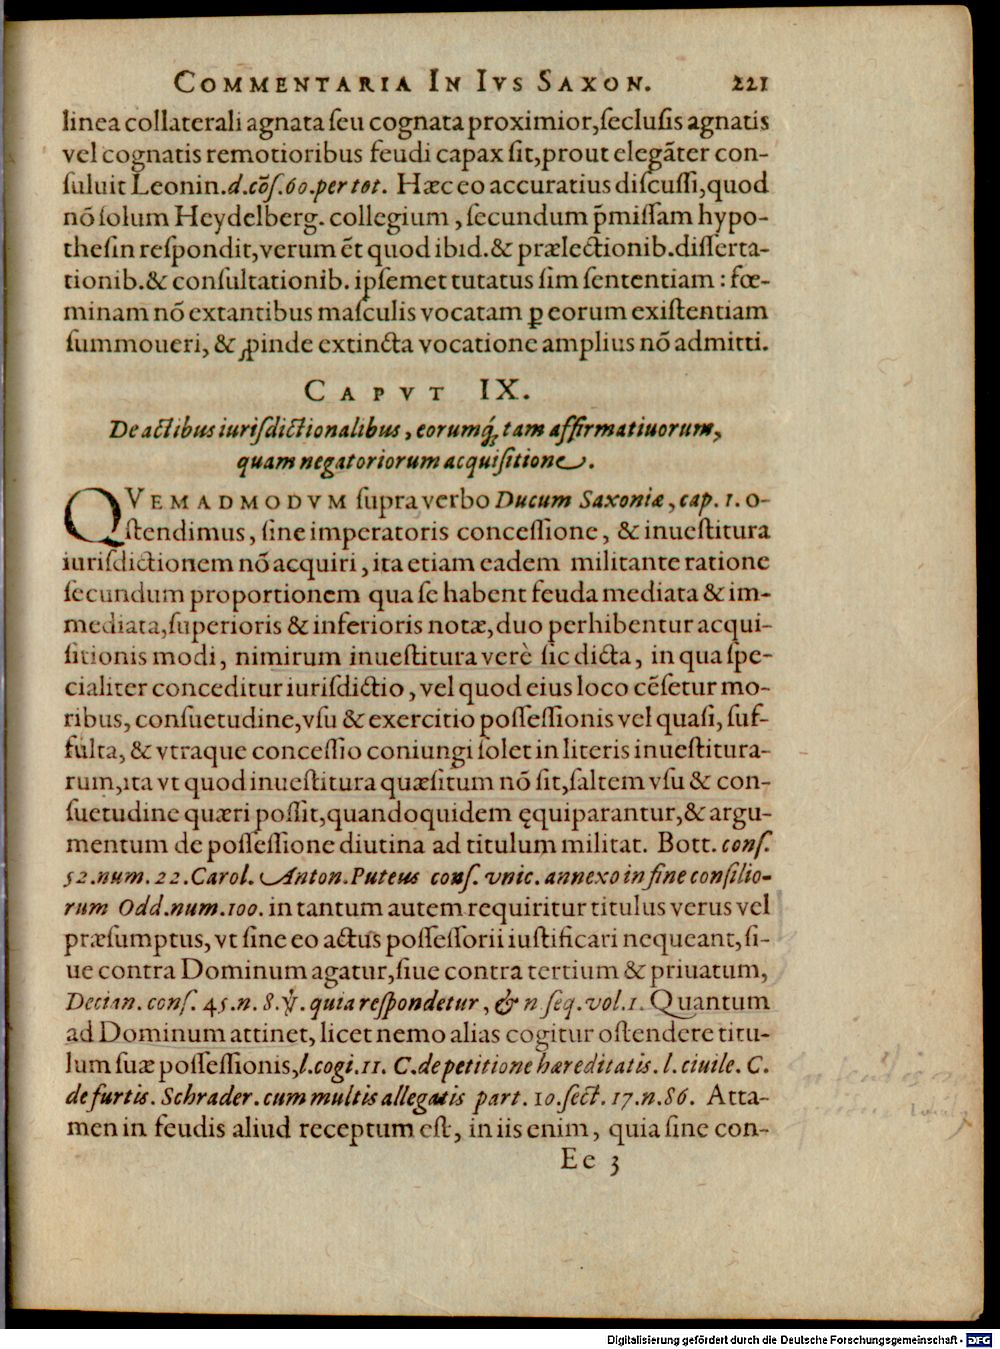 COMMENTARIA IN IVS SAXON. 221
linea collaterali agnata ſeu cognata proximior, ſecluſis agnatis
vel cognatis remotioribus feudi capax ſit, prout elegãter con-
ſuluit Leonin. d. cõſ. 60. per tot. Hæc eo accuratius diſcuſſi, quod
nõ ſolum Heydelberg. collegium, ſecundum p̃miſſam hypo-
theſin reſpondit, verum ẽt quod ibid. & prælectionib. diſſerta-
tionib. & conſultationib. ipſemet tutatus ſim ſententiam: fœ-
minam nõ extantibus maſculis vocatam ꝑ eorum exiſtentiam
ſummoueri, & ꝓinde extincta vocatione amplius nõ admitti.
CAPVT IX.
De actibus iuriſdictionalibus, eorumq́ꝫ tam affirmatiuorum,
quam negatoriorum acquiſitione.
QVEMADMODVM ſupra verbo Ducum Saxoniæ, cap. 1. o-
ſtendimus, ſine imperatoris conceſſione, & inueſtitura
iuriſdictionem nõ acquiri, ita etiam eadem militante ratione
ſecundum proportionem qua ſe habent feuda mediata & im-
mediata, ſuperioris & inferioris notæ, duo perhibentur acqui-
ſitionis modi, nimirum inueſtitura verè ſic dicta, in qua ſpe-
cialiter conceditur iuriſdictio, vel quod eius loco cẽſetur mo-
ribus, conſuetudine, vſu & exercitio poſſeſſionis vel quaſi, ſuf-
fulta, & vtraque conceſſio coniungi ſolet in literis inueſtitura-
rum, ita vt quod inueſtitura quæſitum nõ ſit, ſaltem vſu & con-
ſuetudine quæri poſſit, quandoquidem ęquiparantur, & argu-
mentum de poſſeſſione diutina ad titulum militat. Bott. conſ.
52. num. 22. Carol. Anton. Puteus conſ. vnic. annexo in fine conſilio-
rum Odd. num. 100. in tantum autem requiritur titulus verus vel
præſumptus, vt ſine eo actus poſſeſſorii iuſtificari nequeant, ſi-
ue contra Dominum agatur, ſiue contra tertium & priuatum,
Decian. conſ. 45. n. 8. ℣. quia reſpondetur, & n ſeq. vol. 1. Quantum
ad Dominum attinet, licet nemo alias cogitur oſtendere titu-
lum ſuæ poſſeſſionis, l. cogi. 11. C. de petitione hæreditatis. l. ciuile. C.
de furtis. Schrader. cum multis allegatis part. 10. ſect. 17. n. 86. Atta-
men in feudis aliud receptum eſt, in iis enim, quia ſine con-
Ee 3
Digitalisierung gefördert durch die Deutsche Forschungsgemeinschaft - DFG